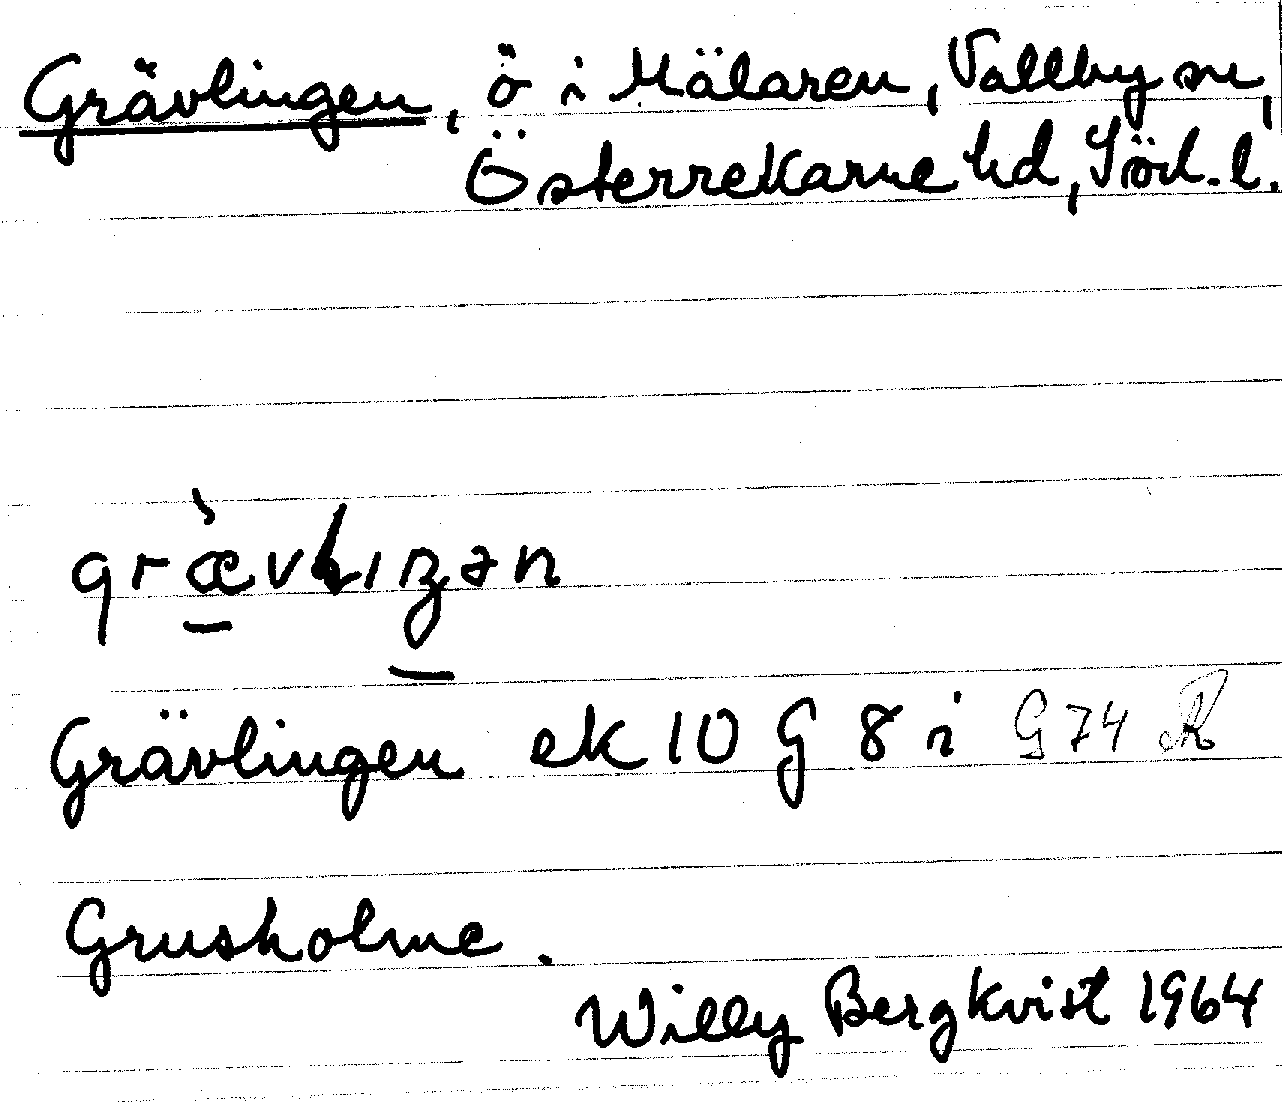 Grävlingen, ö i Mälaren, Vallby sn,
Österrekarne hd, Söd. l.
Grävlingen ek 10 G 8 i G 74 R
Grusholme.
Willy Bergkvist 1964